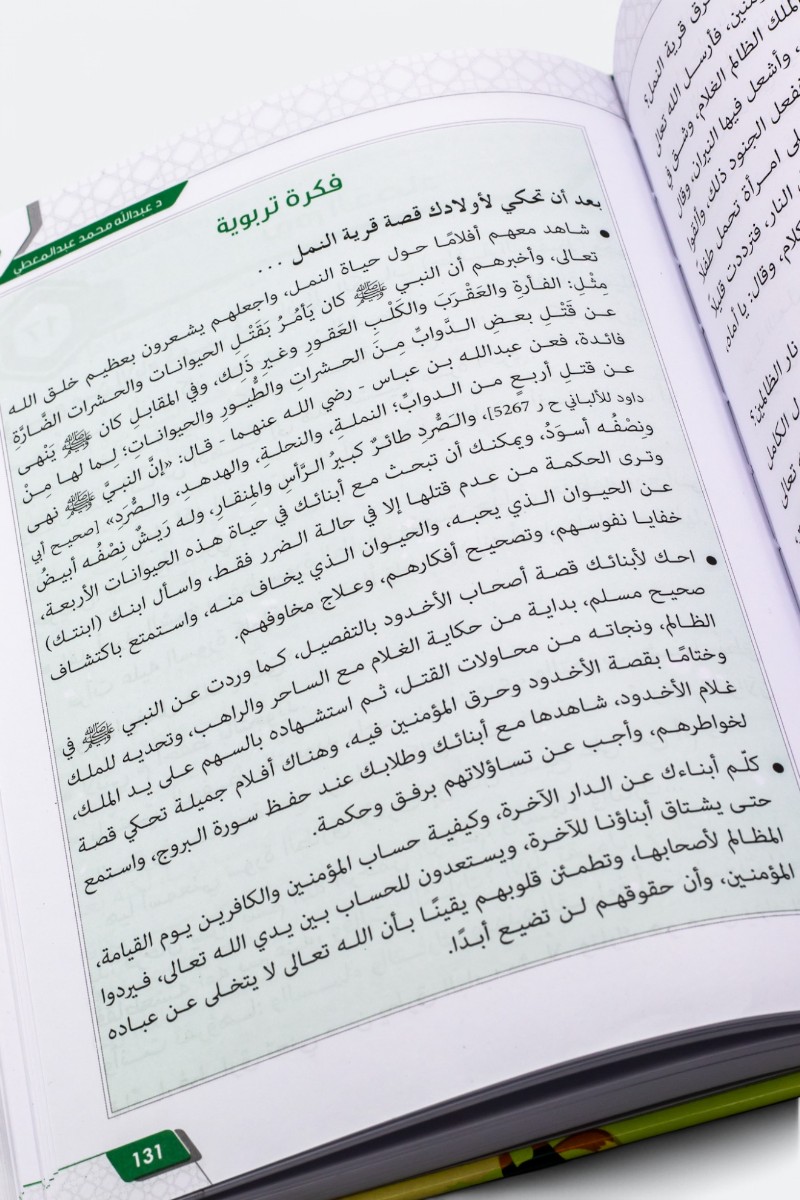 د عبدالله محمد عبدالمعطي
فكرة تربوية
بعد أن تحكي لأولادك قصة قرية النمل ...
• شاهد معهم أفلامًا حول حياة النمل، واجعلهم يشعرون بعظيم خلق الله
تعالى، وأخبرهم أن النبي ﷺ كان يَأمُرُ بَقَتْلِ الحيوانات والحشرات الضَّارَّةِ
مِثْلِ: الفأرةِ والعَقْرَبَ والكَلْبِ العَقورِ وغيرِ ذَلِك، وفي المقابلِ كان ﷺ يَنْهى
عن قَتْلِ بعضِ الدَّوابِّ مِنَ الحشراتِ والطُّيورِ والحيواناتِ؛ لِما لها مِنْ
فائدة، فعن عبدالله بن عباس - رضي الله عنهما - قال: «إنَّ النبيَّ ﷺ نهى
عن قتلِ أربعٍ من الدوابِّ؛ النملةِ، والنحلةِ، والهدهدِ، والصُّرَدِ» [صحيح أبي
داود للألباني ح ر 5267]، والصُّرَدِ طائرٌ كبيرُ الرَّأسِ والمِنقارِ، وله رَيشٌ نِصْفُه أبيضُ
ونصْفُه أسوَدُ، ويمكنك أن تبحث مع أبنائك في حياة هذه الحيوانات الأربعة،
وترى الحكمة من عدم قتلها إلا في حالة الضرر فقط، واسأل ابنك (ابنتك)
عن الحيوان الذي يحبه، والحيوان الذي يخاف منه، واستمتع باكتشاف
خفايا نفوسهم، وتصحيح أفكارهم، وعلاج مخاوفهم.
• احك لأبنائك قصة أصحاب الأخدود بالتفصيل، كما وردت عن النبي ﷺ في
صحيح مسلم، بداية من حكاية الغلام مع الساحر والراهب، وتحديه للملك
الظالم، ونجاته من محاولات القتل، ثم استشهاده بالسهم على يد الملك،
وختامًا بقصة الأخدود وحرق المؤمنين فيه، وهناك أفلام جميلة تحكي قصة
غلام الأخدود، شاهدها مع أبنائك وطلابك عند حفظ سورة البروج، واستمع
لخواطرهم، وأجب عن تساؤلاتهم برفق وحكمة.
• كلّم أبناءك عن الدار الآخرة، وكيفية حساب المؤمنين والكافرين يوم القيامة،
حتى يشتاق أبناؤنا للآخرة، ويستعدون للحساب بين يدي الله تعالى، فيردوا
المظالم لأصحابها، وتطمئن قلوبهم يقينًا بأن الله تعالى لا يتخلى عن عباده
المؤمنين، وأن حقوقهم لن تضيع أبدًا.
131
قرية النمل؟
فأرسل الله تعالى
الملك الظالم الغلام، وشق في
وأشعل فيها النيران، وقال
الجنود ذلك، وألقوا
امرأة تحمل طفلاً
النار، فترددت قليلاً
وقال: يا أماه،
نار الظالمين؟
الكامل
تعالى